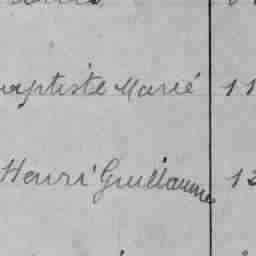 aptiste Marié 11
Henri Guillaume 12